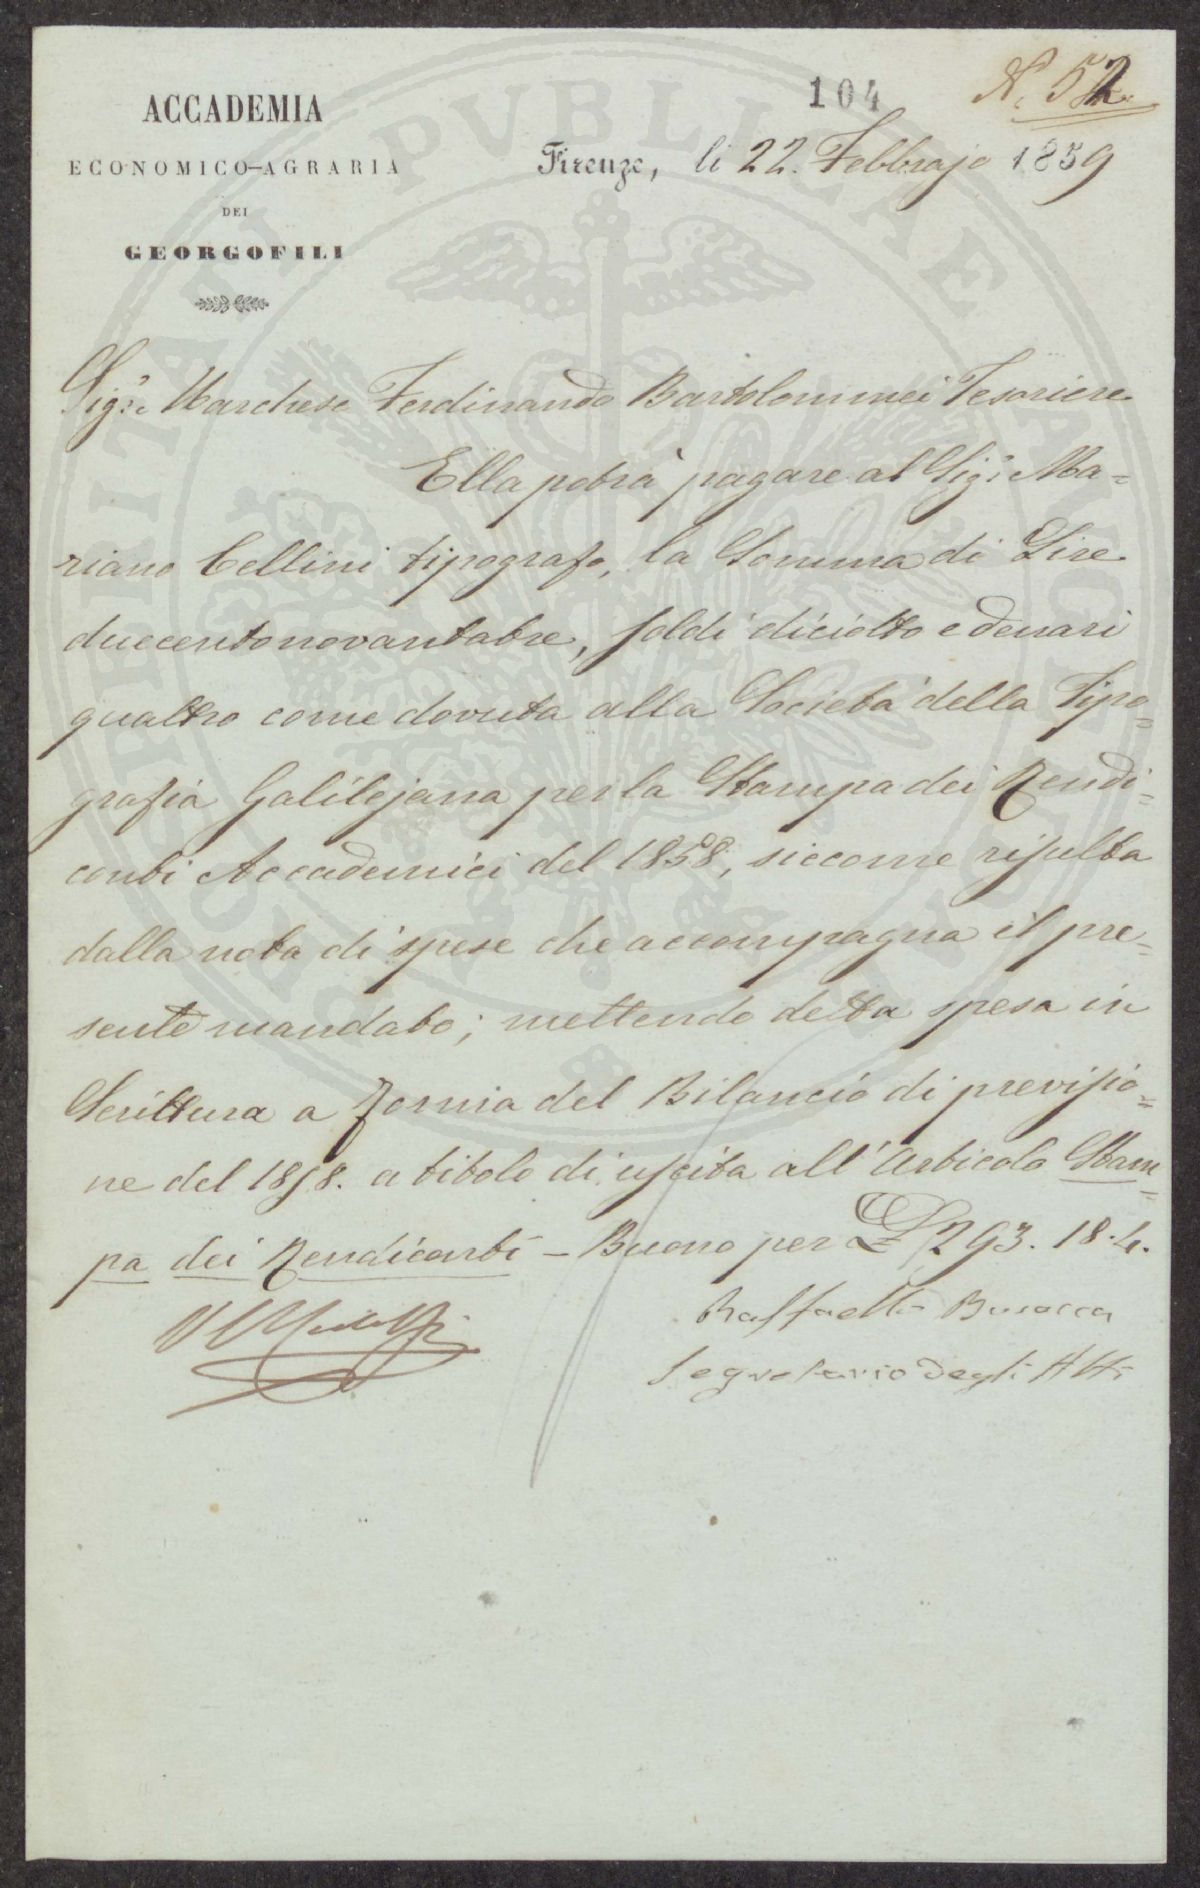 104
N. 52
ACCADEMIA
ECONOMICO-AGRARIA
DEI
GEORGOFILI
Firenze, li 22. Febbrajo 1859
Sigr. Marchese Ferdinando Bartolommei Tesoriere
Ella potrà pagare al Sigr. Ma=
riano Cellini tipografo, la Somma di Lire
duecentonovantatre, soldi diciotto e denari
quattro come dovuta alla Società della Tipo=
grafia Galilejana per la Stampa dei Rendi=
conti Accademici del 1858, siccome risulta
dalla nota di spese che accompagna il pre=
sente mandato; mettendo detta spesa in
Scrittura a forma del Bilancio di previsio=
ne del 1858. a titolo di uscita all'Articolo Stam=
pa dei Rendiconti - Buono per £ 293. 18. 4.
Raffaello Busacca
Segretario degli Atti